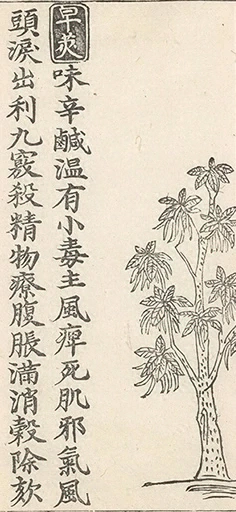 皁莢
味辛鹹温有小毒主風痺死肌邪氣風
頭淚出利九竅殺精物療腹脹滿消穀除欬